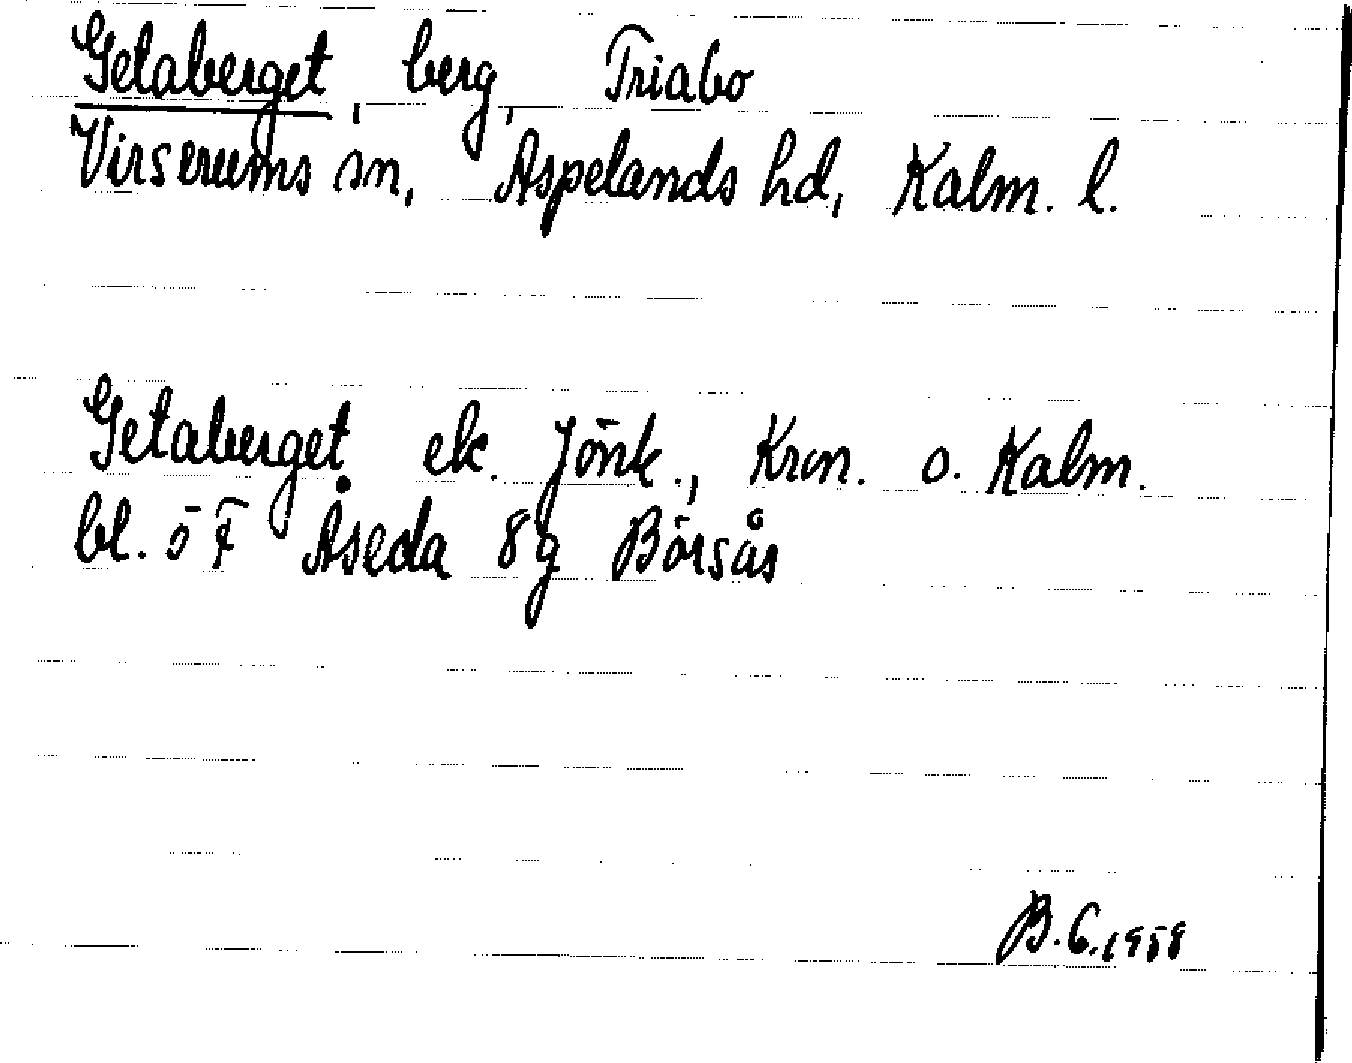 Getaberget, berg, Triabo
Virserums sn, Aspelands hd, Kalm. l.
Getaberget ek. Jönk., Kron. o. Kalm.
bl. 5 F Åseda 8g Börsås
B.C. 1958